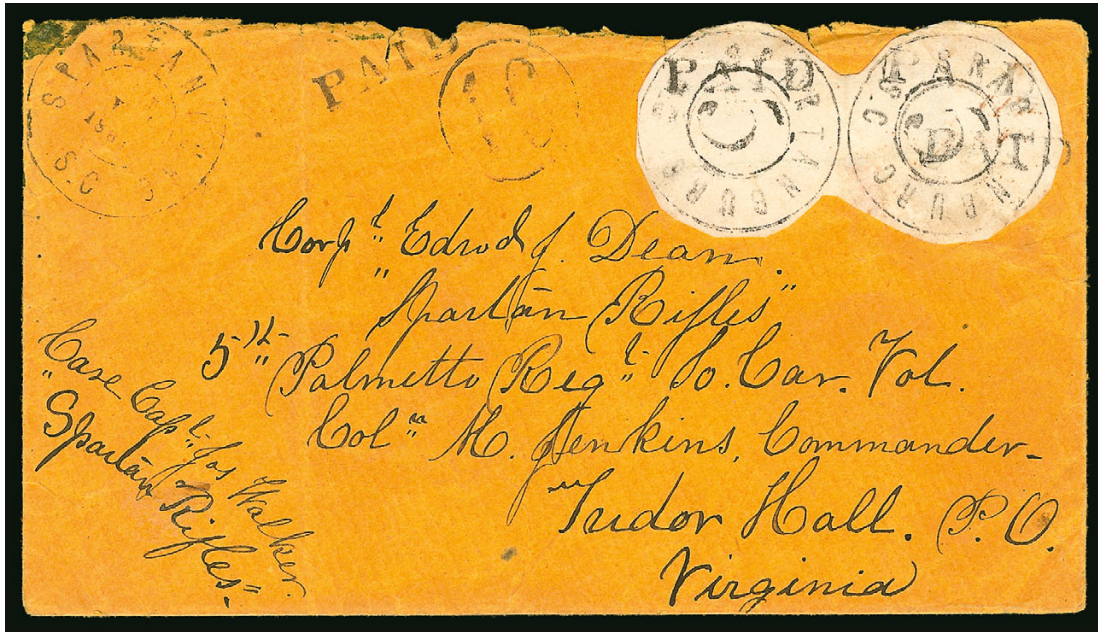 SPARTAN
S.C
186
PAID
10
PAID
SPARTANBURG
5
PAID
SPARTANBURG
5
PAID
Corpl Edwd J. Dean.
"Spartan Rifles"
5th "Palmetto Regt" So. Car. Vol.
Coln M. Jenkins, Commander-
Tudor Hall. P.O.
Virginia
Care Capt Jos Walker.
"Spartan Rifles"